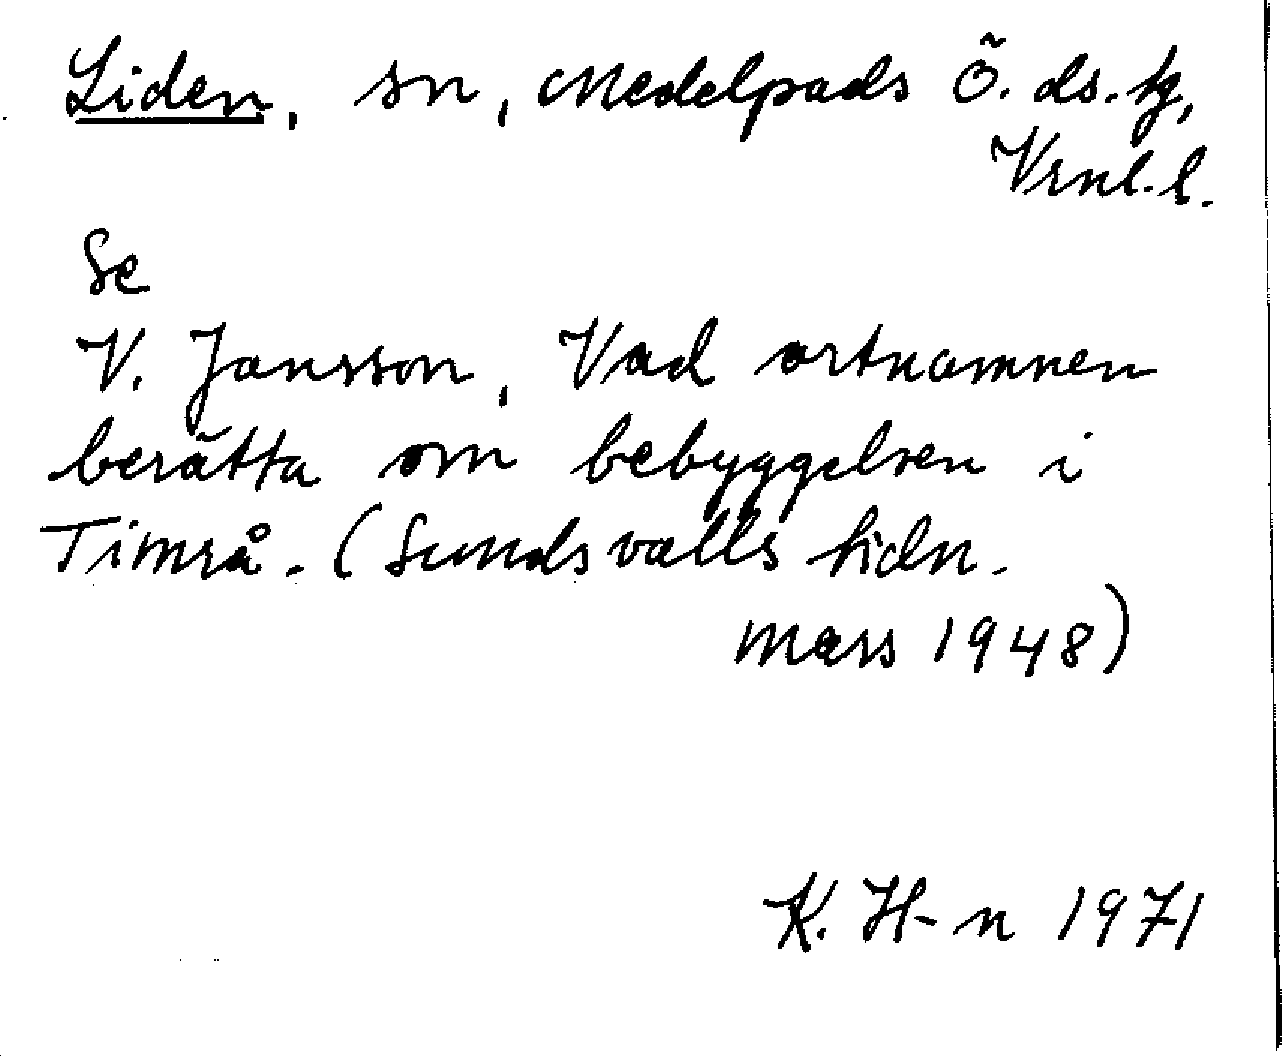 Liden, sn, Medelpads Ö. ds. tg,
Vrnl. l.
Se
V. Jansson, Vad ortnamnen
berätta om bebyggelsen i
Timrå. (Sundsvalls tidn.
mars 1948)
K. H-n 1971